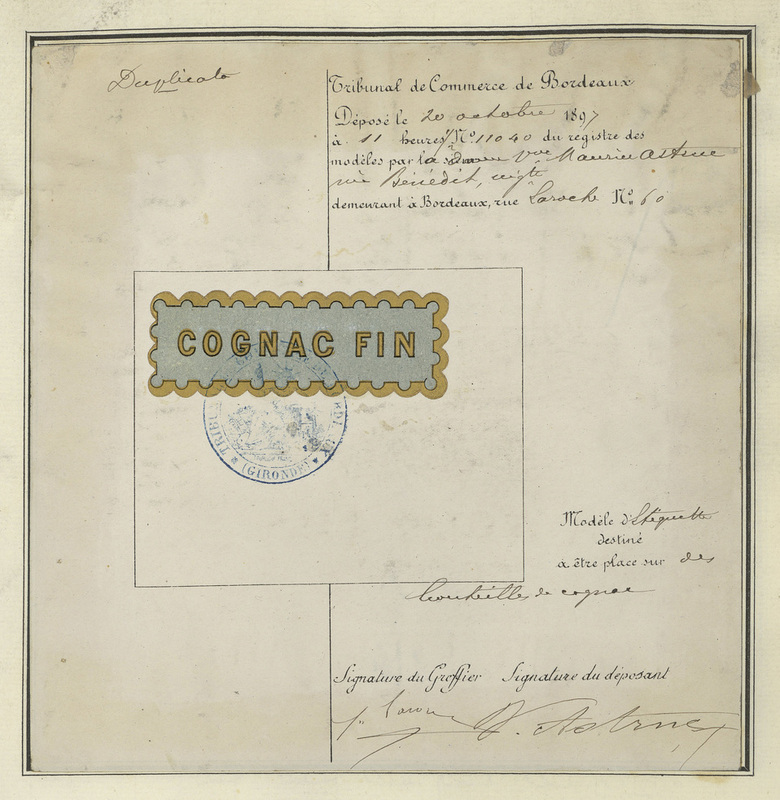 Duplicata
Tribunal de Commerce de Bordeaux
Déposé le 20 octobre 1897
à 11 heures N.º 11040 du registre des
modèles par la Vve Maurice Astruc
née Bénédit, négte
demeurant à Bordeaux, rue Laroche N.º 60
COGNAC FIN
TRIBU
(GIRONDE)
Modèle d'étiquette
destiné
à être place sur des
bouteilles de cognac
Signature du Greffier Signature du déposant
V. Astruc